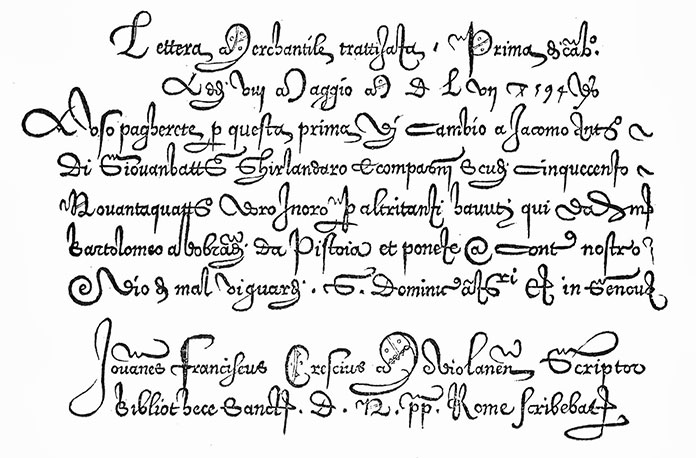 Lettera Merchantile trattizata . Prima di cãb.º
Maggio M D L vij 594
A Vso pagherete p questa prima Di Cambio a Jacomo
Di Giouanbatta Ghirlandaro & compagni Scudi Cinquecento
Nouantaquatto doro Inoro p altritanti hauuti qui da
Bartolomeo da Pistoia et ponete a Conto nostro
Dio di mal vi guardi . S. et in Genoua
Jouanes Franciscus Crescius Mediolanen Scriptor
Bibliothece Sancti . D . N . pp . Rome scribebat